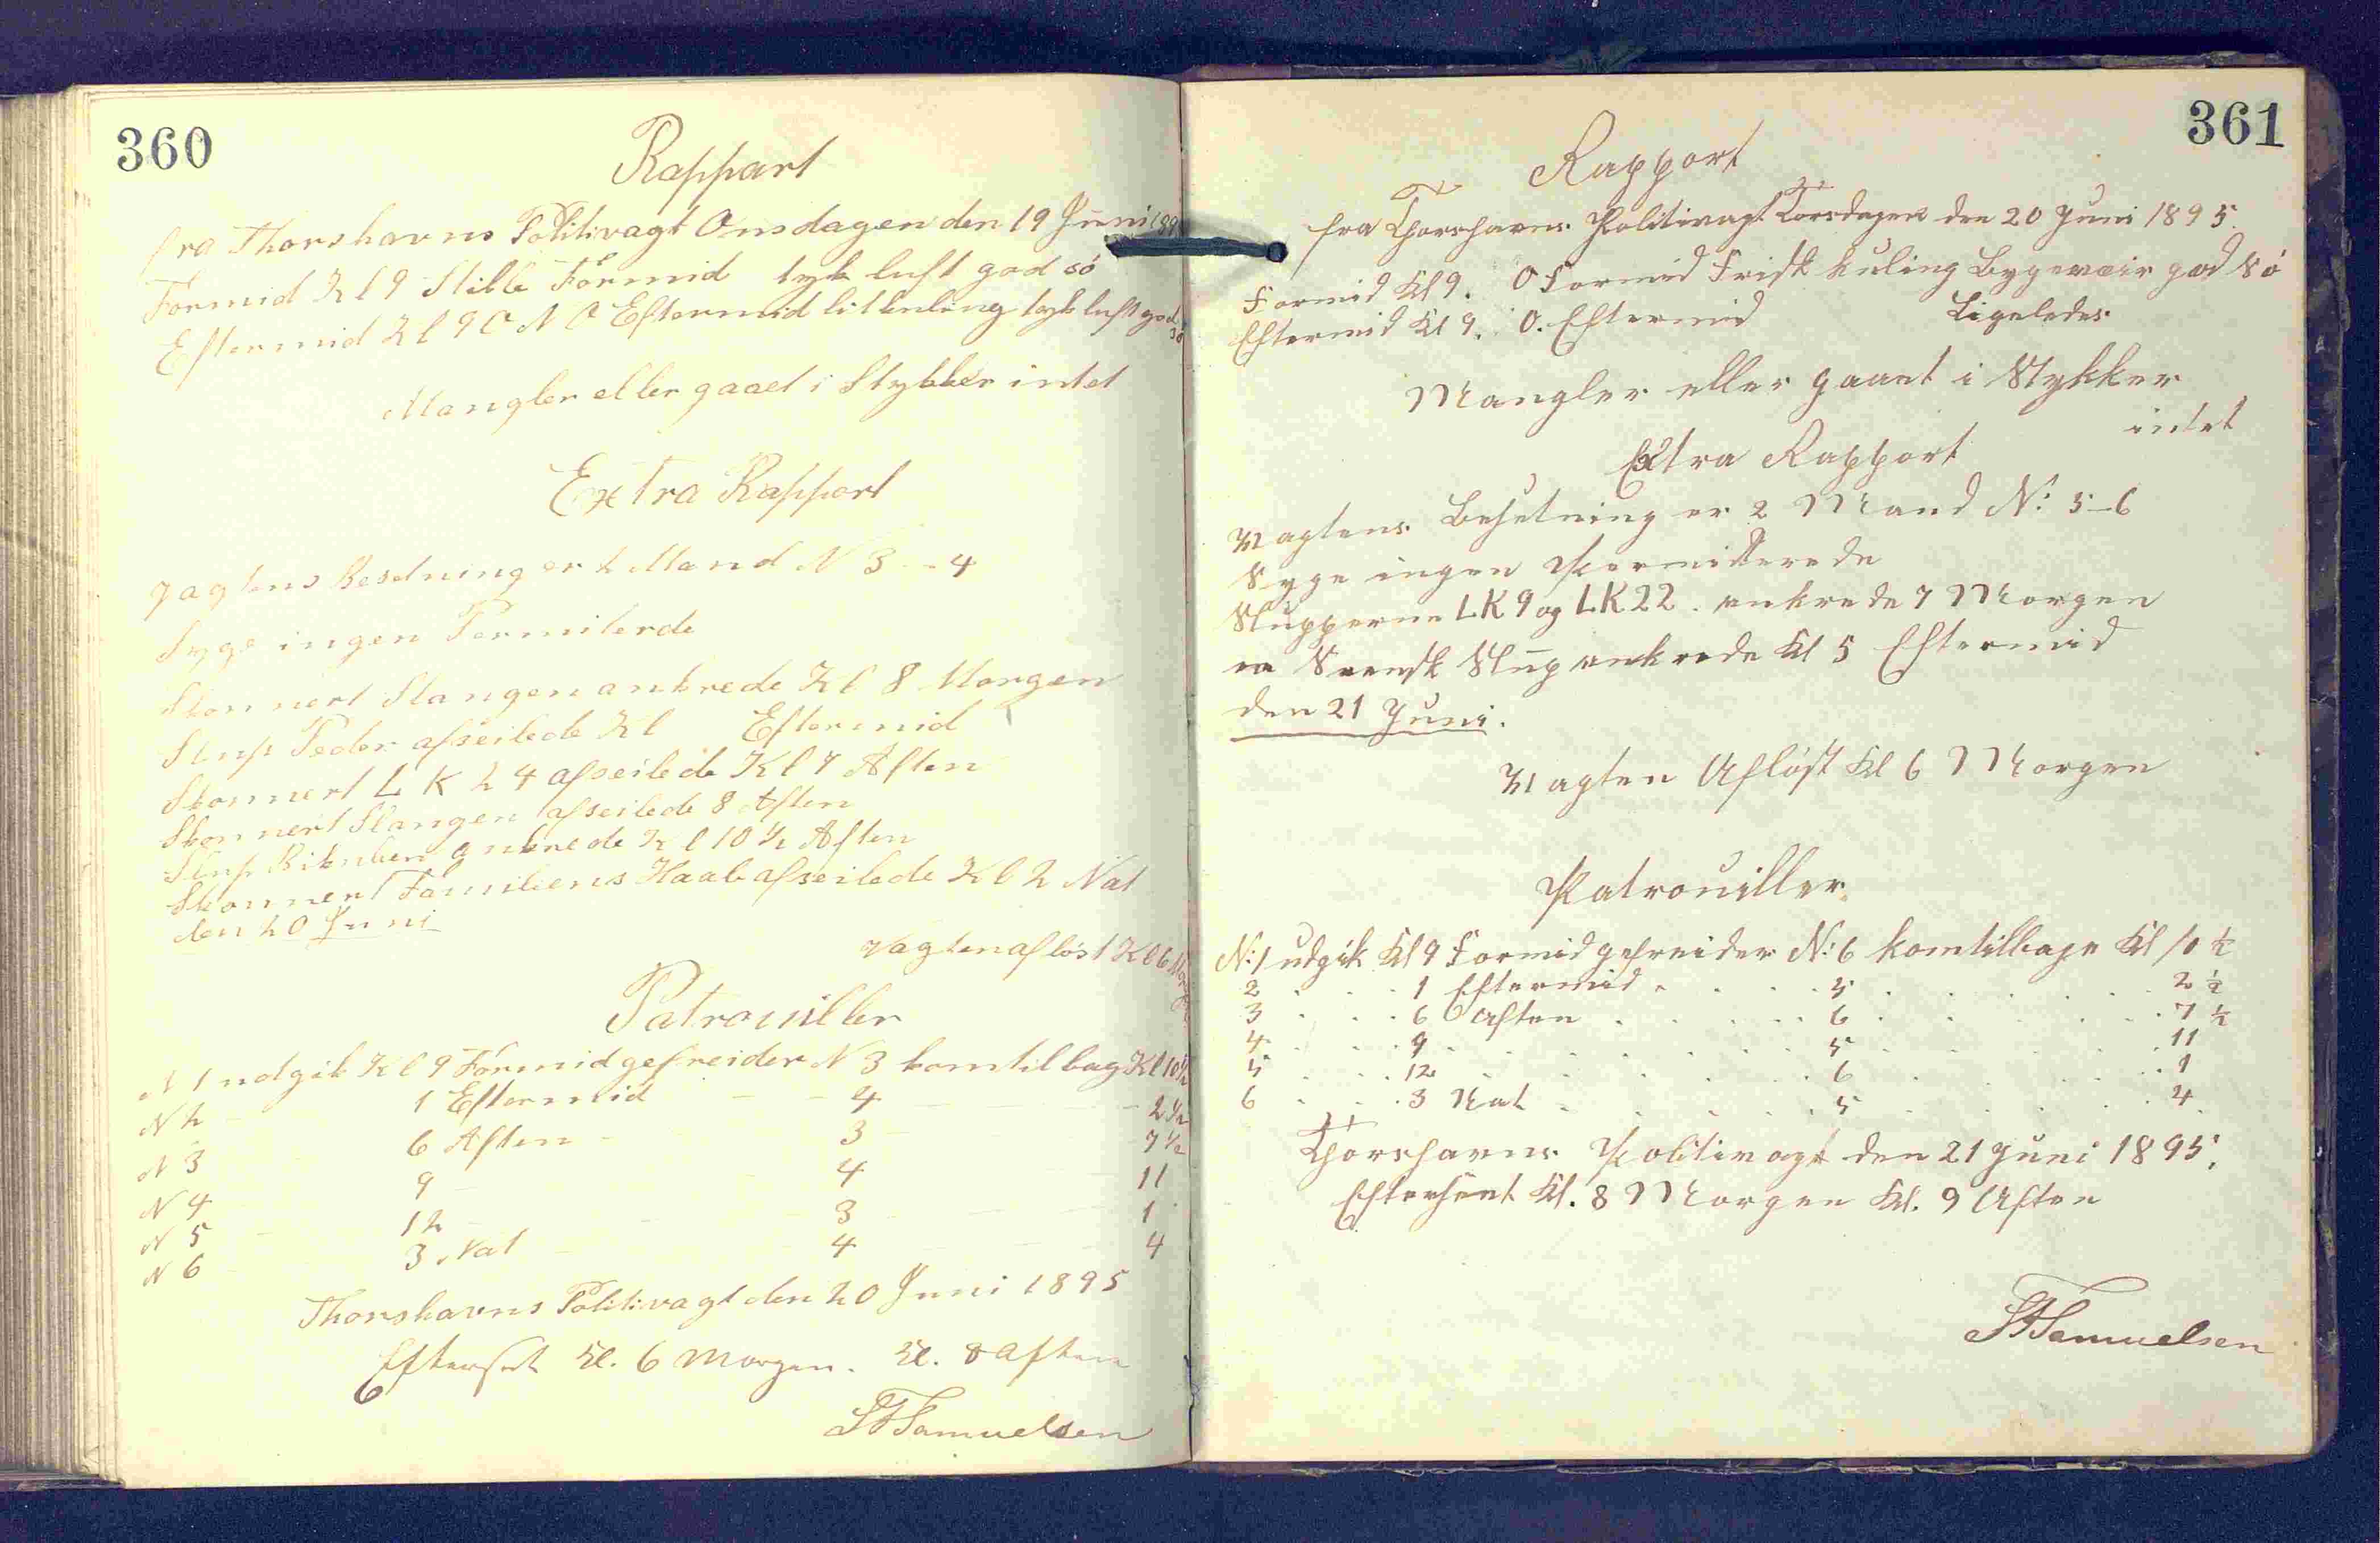 360
Rappart
fra Thorshavns Politivagt Onsdagen den 19 Juni 189
Formid Kl 9 Stille Formid tyk luft god sö
Eftermid Kl 9 O N O Eftermid lit kuling tyk luft god
sö
Mangler eller gaaet i Stykker intet
Extra Rapport
Vagtens Besetning er 2 Mand N 3 - 4
Syge ingen Permiterde
Skonnert Slangen ankrede Kl 8 Morgen
Slup Peder afseilede Kl Eftermid
Skonnert L K 24 afseilede Kl 7 Aften
Skonnert Slangen afseilede 8 Aften
Slup ankrede Kl 10 ½ Aften
Skonnert Familiens Haab afseilede Kl 2 Nat
den 20 Juni
Vagten aflöst Kl 6 Morgen
Patrouiller
N 1 udgik Kl 9 Formid gefreider N 3 kom tilbag Kl 10½
N 2 - 1 Eftermid - - 4 - - 2½
N 3 6 Aften - 3 - 7½
N 4 9 - 4 11
N 5 - 12 - 3 - 1
N 6 - 3 Nat - 4 - 4
Thorshavns Politivagt den 20 Juni 1895
Efterset Kl. 6 Morgen. Kl. 8 Aften
Samuelsen
361
Rapport
fra Thorshavns Politivagt Torsdagen den 20 Juni 1895.
Formid Kl 9. O Formid Frisk kuling Bygevæir god Sö
Eftermid Kl 9. O. Eftermid Ligeledes
Mangler eller gaaet i Stykker
intet
Extra Rapport
Vagtens Besetning er 2 Mand N: 5-6
Syge ingen Permitterede
Slupperne LK9 og LK22. ankrede 7 Morgen
en Svensk Slup ankrede Kl 5 Eftermid
den 21 Juni.
Vagten Aflöst Kl 6 Morgen
Patrouiller.
N: 1 udgik Kl 9 Formid gefreider N: 6 kom tilbage Kl 10 ½
2 . . . 1 Eftermid . . . . 5 . . . . 2 ½
3 . . . 6 Aften . . . . . 6 . . . . 7 ½
4 . . . 9 . . . . . 5 . . . . 11
5 . . . 12 . . . . . 6 . . . . 1
6 . . . 3 Nat . . . . . 5 . . . . 4
Thorshavns Politivagt den 21 Juni 1895.
Efterseet Kl. 8 Morgen Kl. 9 Aften
Samuelsen